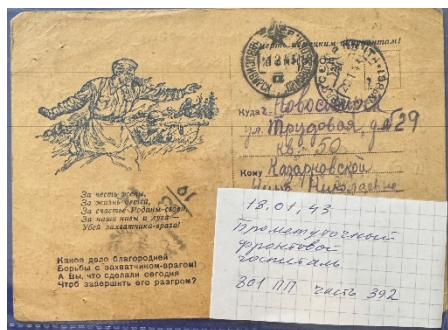 Смерть немецким оккупантам!
Куда г. Новосибирск
ул. Трудовая, д №29
кв. 50
Кому Казарновской
Николаевне
За жизнь детей,
За счастье Родины своей,
За наши нивы и луга—
Убей захватчика-врага!
Какое дело благородней
Борьбы с захватчиком-врагом!
А Вы, что сделали сегодня
Чтоб завершить его разгром?
10
18.01.43
Промежуточный
фронтовой
госпиталь
801 ПП часть 392